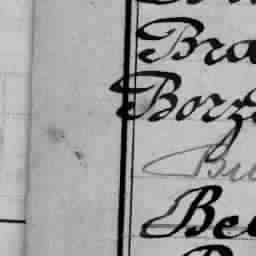 Bra
Borz
Bu
Bel